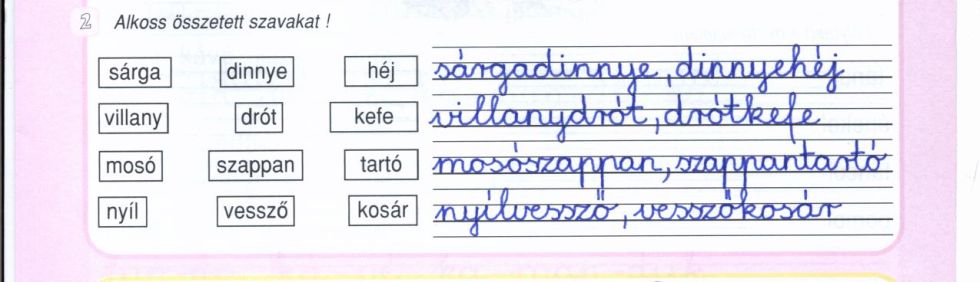 2 Alkoss összetett szavakat !
sárga dinnye héj sárgadinnye, dinnyehéj
villany drót kefe villanydrót, drótkefe
mosó szappan tartó mosószappan, szappantartó
nyíl vessző kosár nyílvessző, vesszőkosár